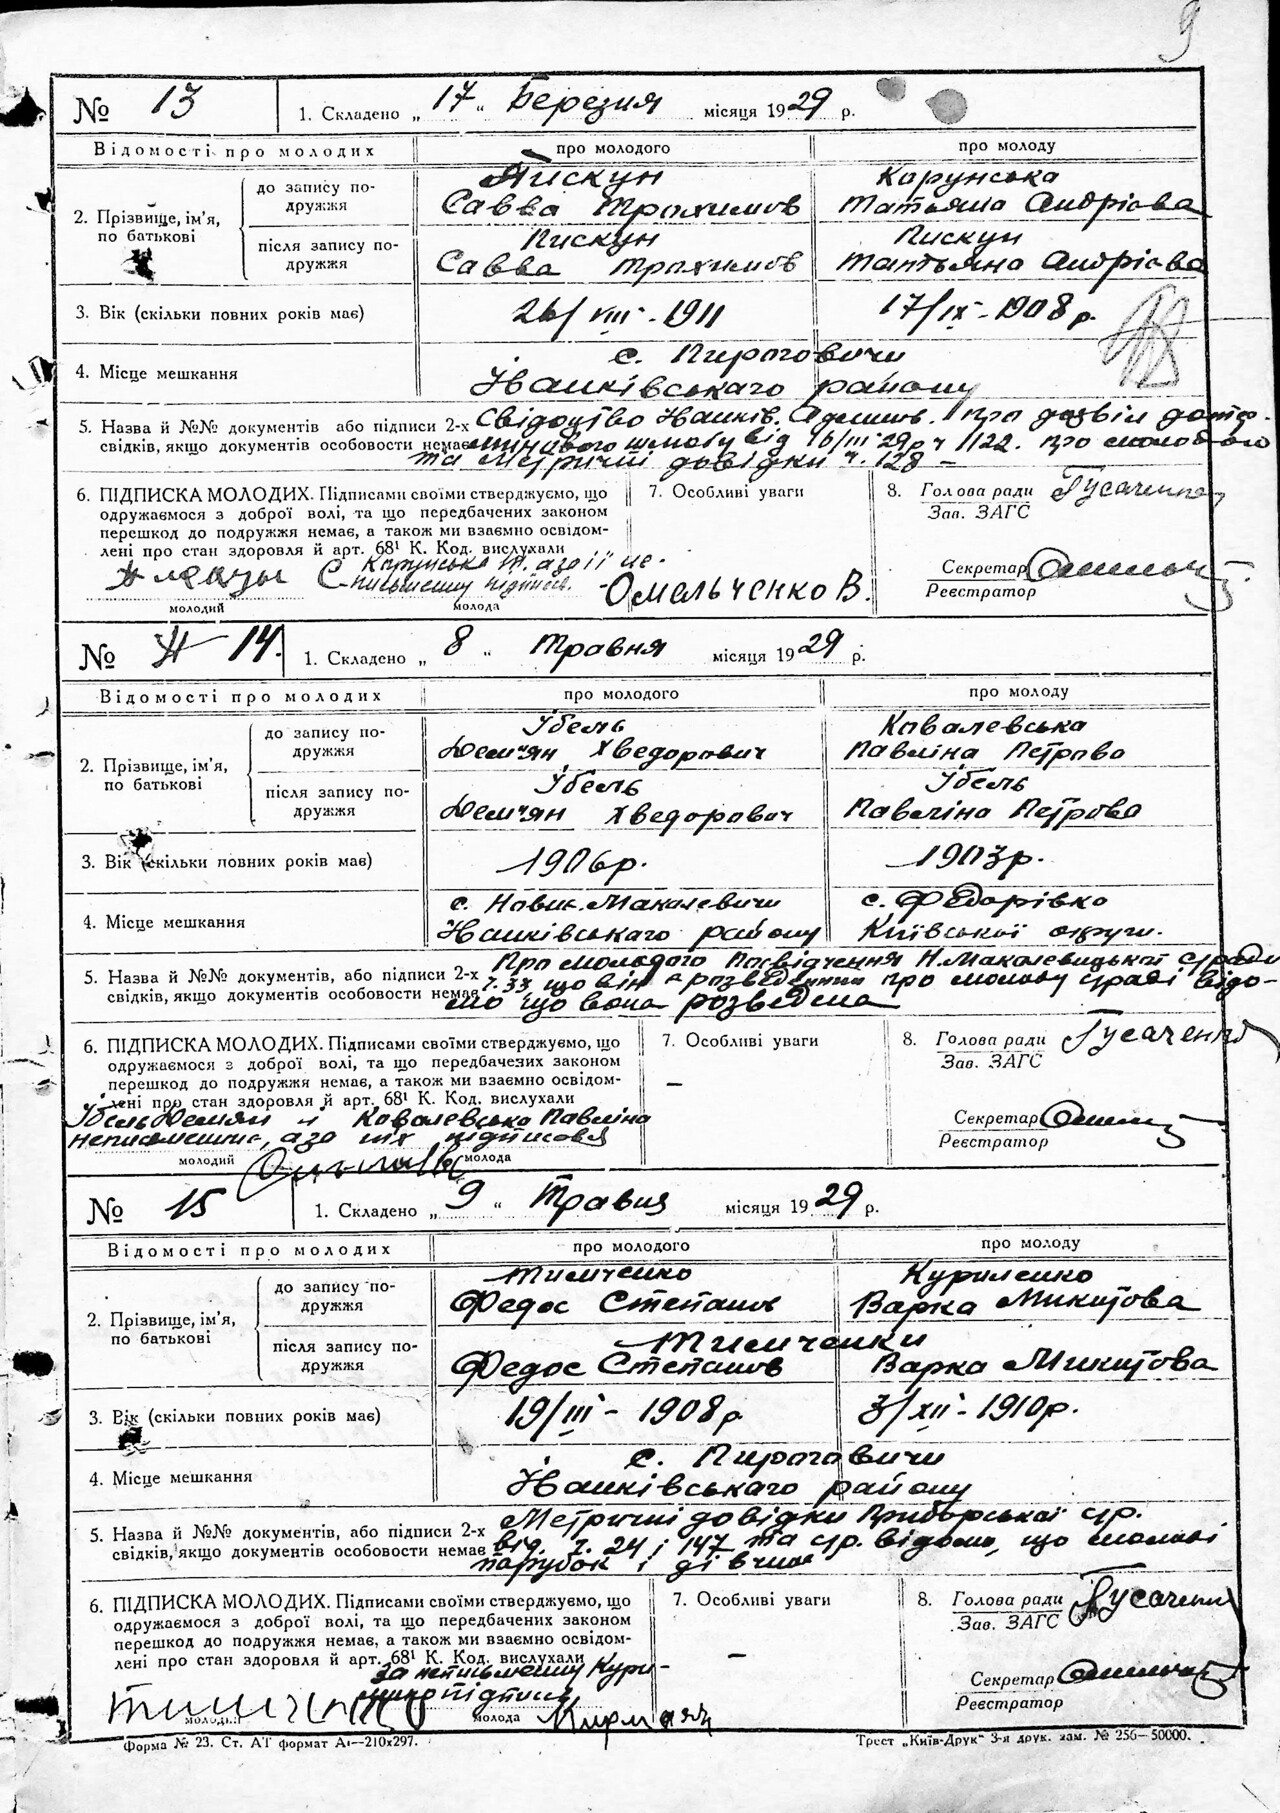 9
№ 13 1. Складено „ 17 “ Березня місяця 1929 р.
Відомості про молодих про молодого про молоду
2. Прізвище, ім'я, по батькові
до запису подружжя
Пискун Карунська
Савва Трохимов Татьяна Андріева
після запису по-
дружжя
Пискун Пискун
Савва Трохимов Татьяна Андріева
3. Вік (скільки повних років має) 26/VIII-1911 17/IX-1908 р.
4. Місце мешкання
с. Пироговичи
Іванківського району
5. Назва й №№ документів або підписи 2-х Свідоцтво Іванків. Админ. про дозвіл дотер-
свідків, якщо документів особовости немає мінового шлюбу від 16/III 29 р ч 1122. про молодого
та Метричні довідки ч. 128 –
6. ПІДПИСКА МОЛОДИХ. Підписами своїми стверджуємо, що
одружаємося з доброї волі, та що передбачених законом
перешкод до подружжя немає, а також ми взаємно освідом-
лені про стан здоровля й арт. 68¹ К. Код. вислухали
7. Особливі уваги
8. Голова ради Гусаченко
Зав. ЗАГС
Карунська Т. а за її не-
письменну підпис.
Омельченко В.
Секретар
Реєстратор
молодий молода
№ 14. 1. Складено „ 8 “ травня місяця 1929 р.
Відомості про молодих про молодого про молоду
2. Прізвище, ім'я,
по батькові
до запису по-
дружжя
Убель Ковалевська
Дем'ян Хведорович Павліна Петрова
після запису по-
дружжя
Убель Убель
Дем'ян Хведорович Павліна Петрова
3. Вік (скільки повних років має) 1906 р. 1903 р.
4. Місце мешкання
с. Нов. Макалевичи с. Федорівка
Іванківського району Київської округи.
5. Назва й №№ документів, або підписи 2-х Про молодого Посвідчення Н. Макалевицької с/ради
свідків, якщо документів особовости немає що він розведений про молоду с/раді відо-
мо що вона розведена
6. ПІДПИСКА МОЛОДИХ. Підписами своїми стверджуємо, що
одружаємося з доброї волі, та що передбачених законом
перешкод до подружжя немає, а також ми взаємно освідом-
лені про стан здоровля й арт. 68¹ К. Код. вислухали
7. Особливі уваги
–
8. Голова ради Гусаченко
Зав. ЗАГС
Убель Демян і Ковалевська Павліна
неписьменні, а за них підписався
Секретар
Реєстратор
молодий молода
№ 15 1. Складено „ 9 “ Травня місяця 1929 р.
Відомості про молодих про молодого про молоду
2. Прізвище, ім'я,
по батькові
до запису по-
дружжя
Тимченко Куриленко
Федос Степанов Варка Микитова
після запису по-
дружжя
Тимченки
Федос Степанов Варка Микитова
3. Вік (скільки повних років має) 19/III-1908 р 3/XII-1910 р.
4. Місце мешкання
с. Пироговичи
Іванківського району
5. Назва й №№ документів, або підписи 2-х Метричні довідки Приборської с/р.
свідків, якщо документів особовости немає від. ч. 24 і 147 та с/р. відомо, що молоді
парубок і дівчина
6. ПІДПИСКА МОЛОДИХ. Підписами своїми стверджуємо, що
одружаємося з доброї волі, та що передбачених законом
перешкод до подружжя немає, а також ми взаємно освідом-
лені про стан здоровля й арт. 68¹ К. Код. вислухали
7. Особливі уваги
–
8. Голова ради Гусаченко
Зав. ЗАГС
за неписьменну Кури-
ленко підписався
Тимченко
Секретар
Реєстратор
молодий молода
Форма № 23. Ст. АТ формат А₁—210x297. Трест „Київ-Друк“ 3-я друк. зам. № 256—50000.